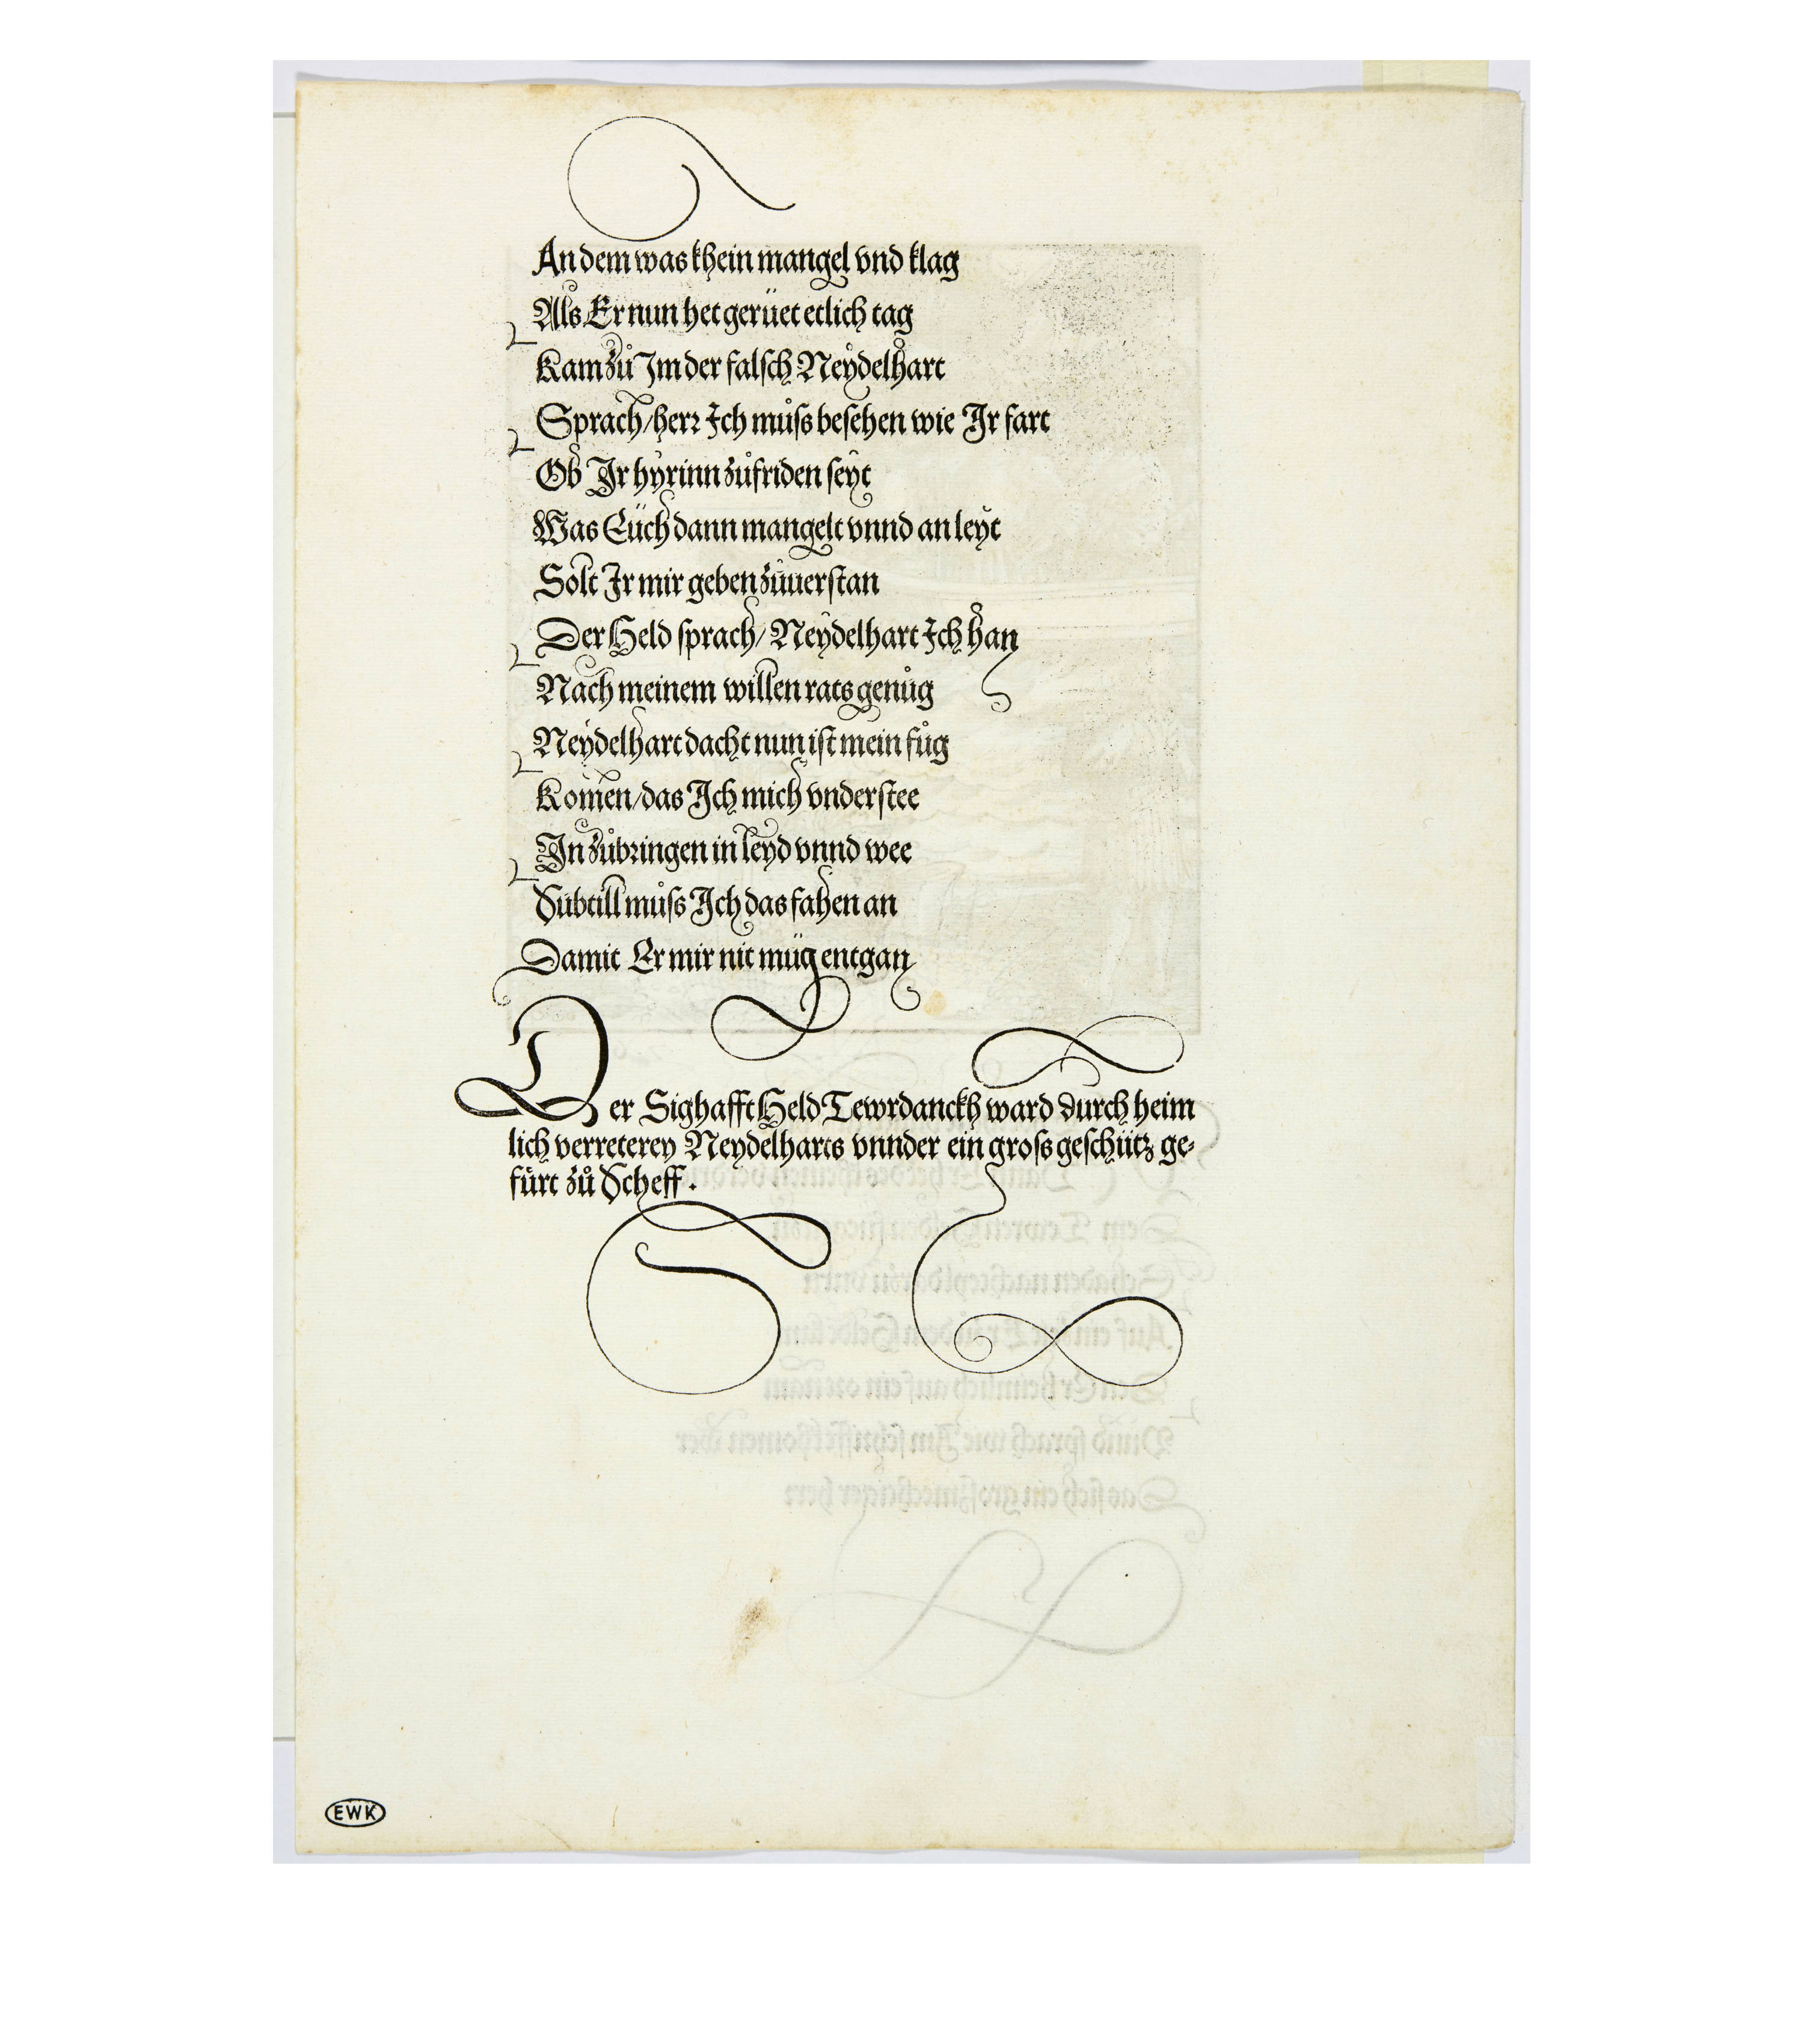 An dem was khein mangel vnd klag
Als Er nun het gerüet etlich tag
Kam zů Im der falsch Neydelhart
Sprach/herr Ich můſs beſehen wie Ir fart
Ob Ir hyrinn zůfriden ſeyt
Was Eüch dann mangelt vnnd an leyt
Solt Ir mir geben zůuerſtan
Der Held ſprach/Neydelhart Ich han
Nach meinem willen rats genůg
Neydelhart dacht nun iſt mein fůg
Komen/das Ich mich vnderſtee
In zůbringen in leyd vnnd wee
Subtill můſs Ich das fahen an
Damit Er mir nit müg entgan
Der Sighafft Held Tewrdanckh ward durch heim
lich verreterey Neydelharts vnnder ein groſs geſchütz ge⸗
fůrt zů Scheff.
EWK